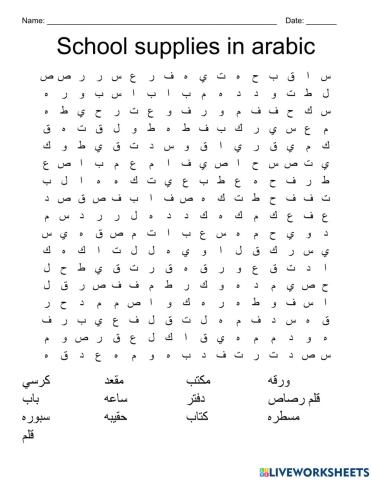 Name: ____________________ Date: _______
School supplies in arabic
س ا ق ب ح ه ت ي ه ف ر ع س ر ر ص ص
ل ط ت و د د ه م ب ا ب ا س ب و ر ه
س ك ح ف ف م و ر ف و ع ت ر ح ي ط ه
م ع س ي ر ك ب ف ط ه ط و ل ق ت ه ق
ك م ي ق ر ي ا ق و س د ت ق ي ط و ك
ي ت ص س ح ا ص ي ف ا م ع م ب ا ص ع
ط ر ف ح ه ع ط ب ع ي ت ك ه ه ا ل ب
ت ف ف ح ط ت ك ه ص ف ا ب ف ص ق ص د
ع ف ع ك م ك ه ك د د ه ل ر ر د س م
د و ي ح م ه س ع ب ا ت م ص ق ه ي س
ي س ر ك ق ل ا و ي ه ل ل ت ا ك ه ك
ا د ت ق ع و ر ق ه ق ر ت ق ي ط ح ل
ح ص ي م د ه و ك ر ط م ف ف ص ر ق ل
ا س ف و ط ه ر ه ك و ا ص م م د ح ر
ق ه س د ف م ه ل ت ق ل ف ع ي ب ر ف
ه و د م م ه ي ق ا ك ل ع ق ر ص و م
س ص د ت ر ت ف د ب ه و م ه ع د ق ه
ورقه مكتب مقعد كرسي
قلم رصاص دفتر ساعه باب
مسطره كتاب حقيبه سبوره
قلم
LIVEWORKSHEETS